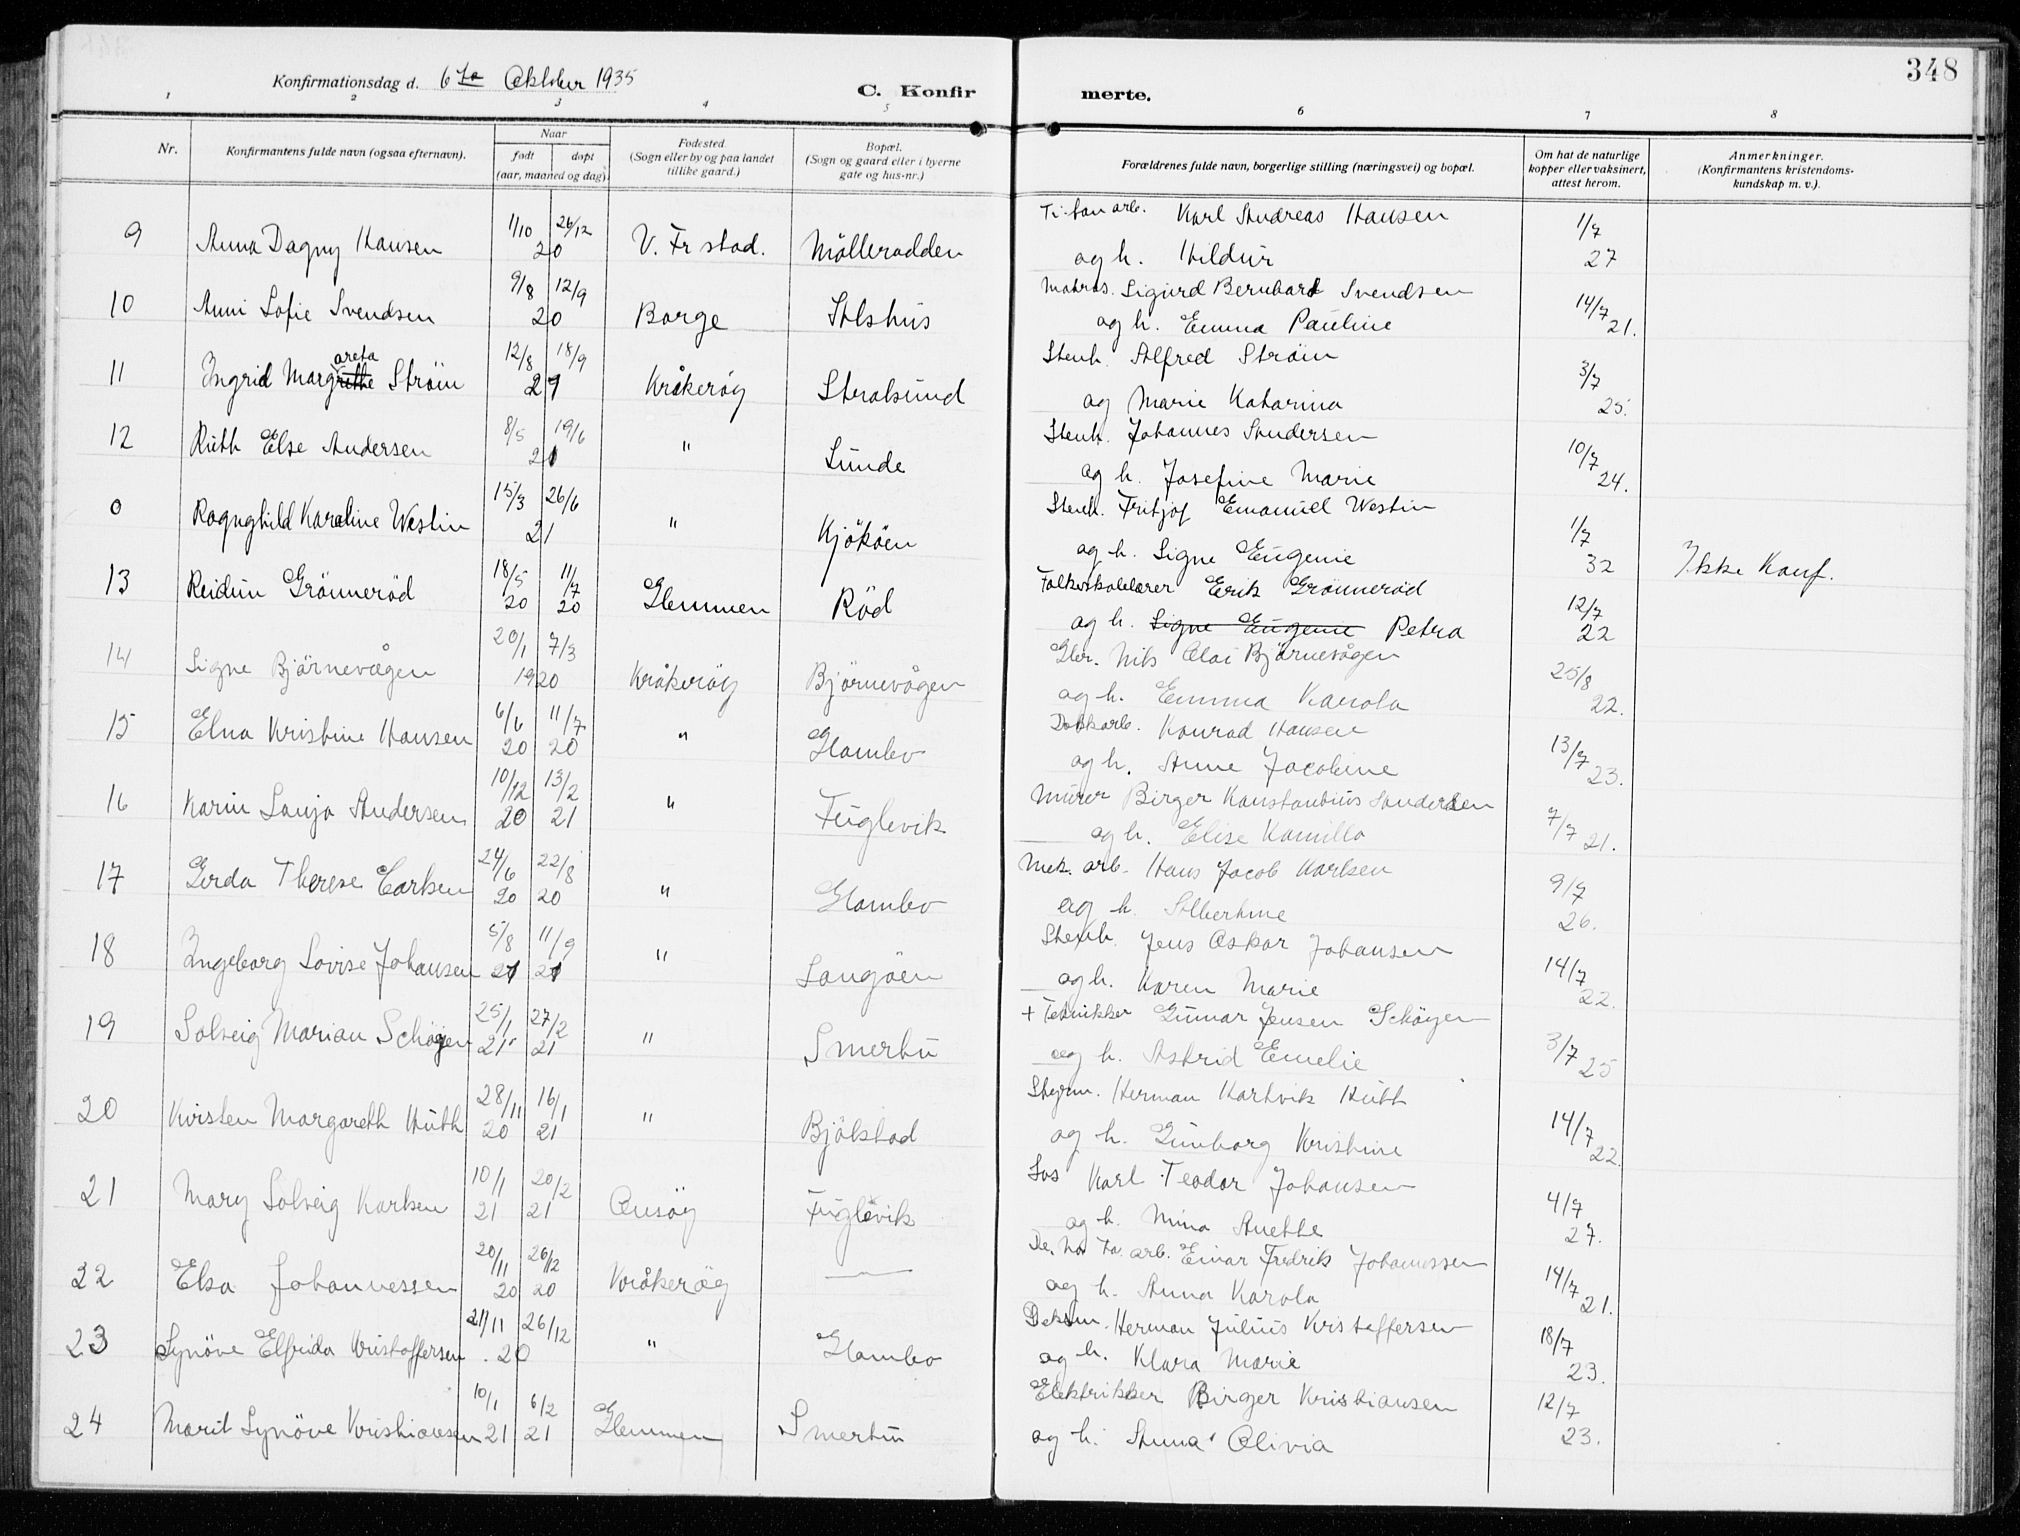 348
Konfirmationsdag d. 6te Oktober 1935
C. Konfirmerte.
1 2 3 4 5 6 7 8
Nr. Konfirmantens fulde navn (ogsaa efternavn). Naar født døpt (aar, maaned og dag) Fødested. (Sogn eller by og paa landet tillike gaard.) Bopæl. (Sogn og gaard eller i byerne gate og hus-nr.) Forældrenes fulde navn, borgerlige stilling (næringsvei) og bopæl. Om hat de naturlige kopper eller vaksinert, attest herom. Anmerkninger. (Konfirmantens kristendoms-kundskap m. v.).
9 Anna Dagny Hansen 1/10 26/12 20 V. Fr stad. Mölleradden Titan arb. Karl Andreas Hansen 1/7
og h. Hildur 27
10 Anni Sofie Svendsen 9/8 12/9 20 Borge Alshus Matros. Sigurd Bernhard Svendsen 14/7
og h. Emma Pauline 21.
11 Ingrid Margareta Ström 12/8 18/9 21 Kråkeröy Stralsund Stenh. Alfred Ström 3/7
og Marie Katarina 25.
12 Ruth Else Andersen 8/5 19/6 21 " Lunde Stenh. Johannes Andersen 10/7
og h. Josefine Marie 24.
0 Ragnghild Karoline Westin 15/3 26/6 21 " Kjököen Stenh. Fritjof Emanuel Westin 1/7
og h. Signe Eugenie 32 Ikke Konf.
13 Reidun Grönneröd 18/5 20 11/7 20 Glemmen Röd Folkeskolelærer Erik Grönneröd 12/7
og h. Signe Eugenie Petra 22
14 Signe Björnevågen 20/1 7/3 1920 Kråkeröy Björnevågen Gbr. Nils Olai Björnevågen 25/8
og h. Emma Karola 22.
15 Elna Kristine Hansen 6/6 20 11/7 20 " Glombo Dokkarb. Konrad Hansen 13/7
og h. Anne Jacobine 23.
16 Karin Sonja Andersen 10/12 20 13/2 21 " Fuglevik Murer Birger Konstantius Andersen 7/7
og h. Elise Kamilla 21.
17 Gerda Therese Carlsen 24/6 20 22/8 20 " Glombo Mek. arb. Hans Jacob Karlsen 9/7
og h. Albertine 26.
18 Ingeborg Lovise Johansen 5/8 21 11/9 21 " Langöen Stenh. Jens Oskar Johansen 14/7
og h. Karen Marie 22.
19 Solveig Marian Schöyen 25/1 21 27/2 21 " Smertu + Tekniker Gunnar Jensen Schöyen 3/7
og h. Astrid Emelie 25
20 Kirsten Margareth Huth 28/11 20 16/1 21 " Bjölstad Styrm. Herman Hartvik Huth 14/7
og h. Gunborg Kristine 22.
21 Mary Solveig Karlsen 10/1 21 20/2 21 Onsöy Fuglevik Los Karl Teodor Johansen 4/7
og h. Mina Anette 27.
22 Elsa Johannessen 20/11 20 26/12 20 Kråkeröy — De. No. Fa. arb. Einar Fredrik Johannessen 14/7
og h. Anna Karola 21.
23 Synöve Elfrida Kristoffersen 21/11 26/12 20 " Glombo Deksm. Herman Julius Kristoffersen 18/7
og h. Klara Marie 23.
24 Marit Synöve Kristiansen 10/1 21 6/2 21 Glemmen Smertu Elektrikker Birger Kristiansen 12/7
og h. Anna Olivia 23.